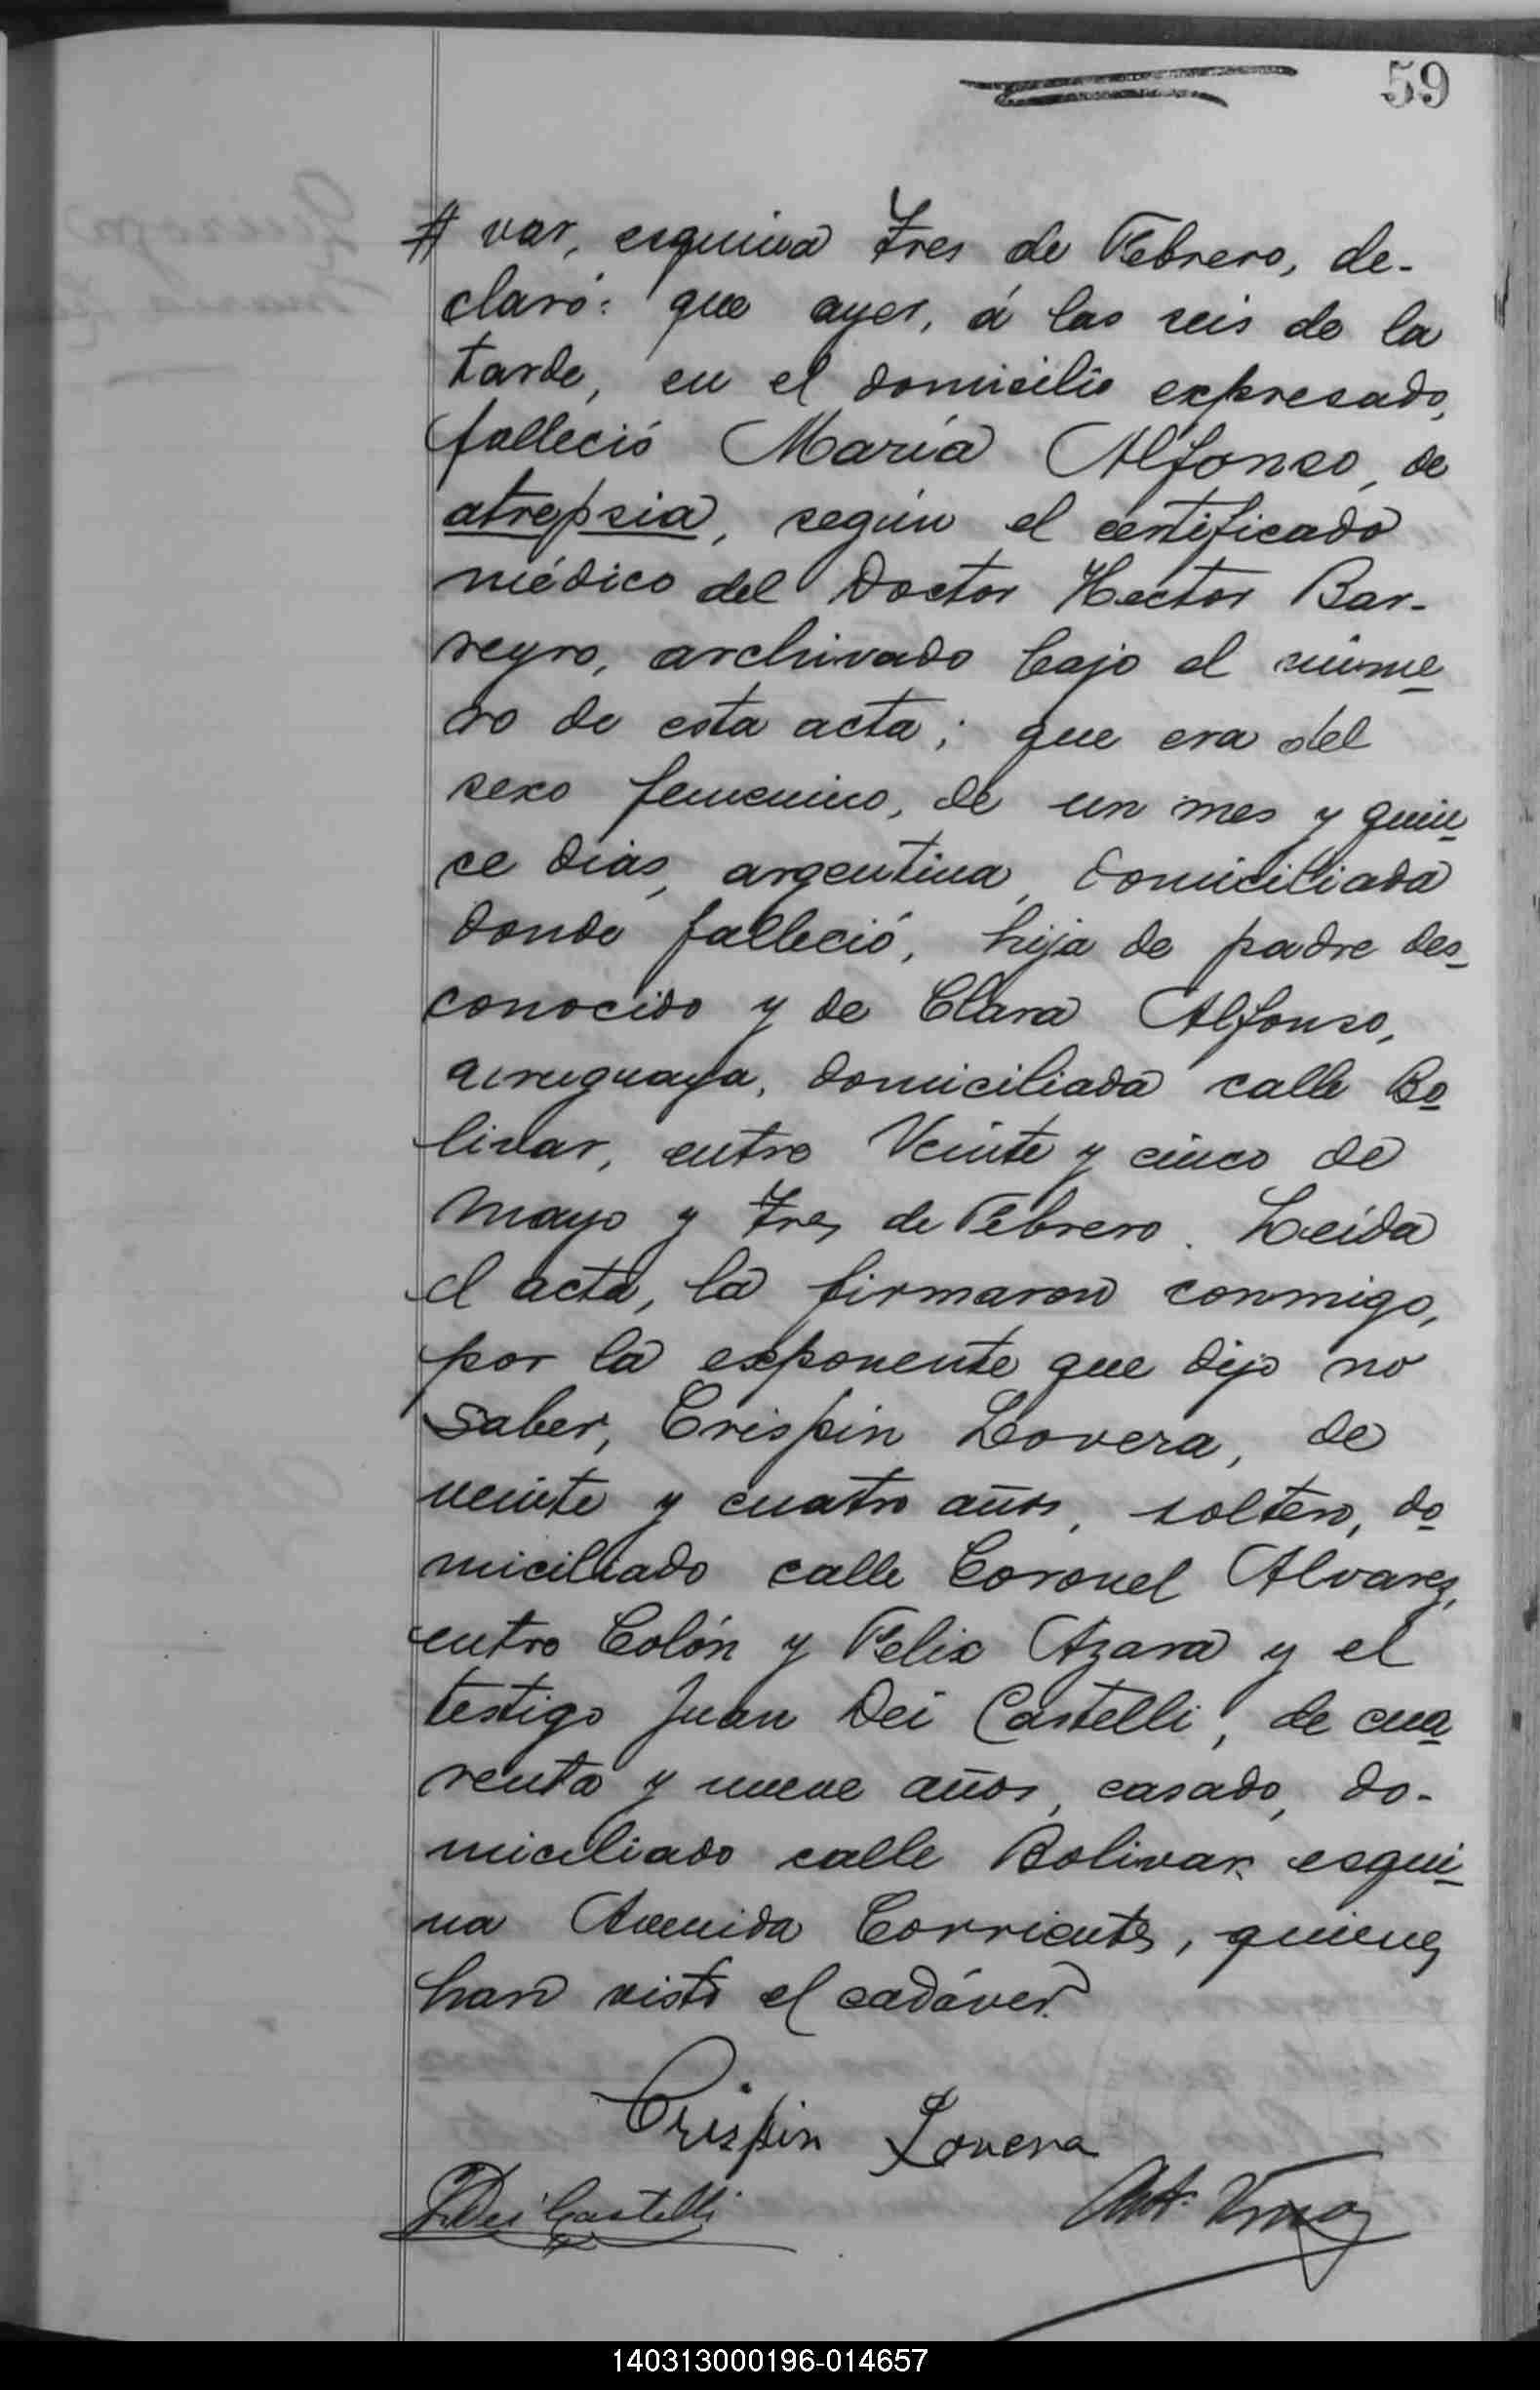 59
# var, esquina Tres de Febrero, de-
claró: que ayer, á las seis de la
tarde, en el domicilio expresado,
falleció María Alfonso, de
atrepsia, según el certificado
médico del Doctor Hector Bar-
reyro, archivado bajo el núme
ro de esta acta; que era del
sexo femenino, de un mes y quin
ce dias, argentina, domiciliada
donde falleció, hija de padre des
conocido y de Clara Alfonso,
uruguaya, domiciliada calle Bo
livar, entre Veinte y cinco de
Mayo y Tres de Febrero. Leida
el acta, la firmaron conmigo,
por la exponente que dijo no
saber, Crispin Lovera, de
veinte y cuatro años, soltero, do
miciliado calle Coronel Alvarez,
entre Colón y Felix Azara y el
testigo Juan Dei Castelli, de cua
renta y nueve años, casado, do-
miciliado calle Bolivar esqui
na Avenida Corrientes, quienes
han visto el cadáver.
Crispin Lovera
J. Dei Castelli
140313000196-014657